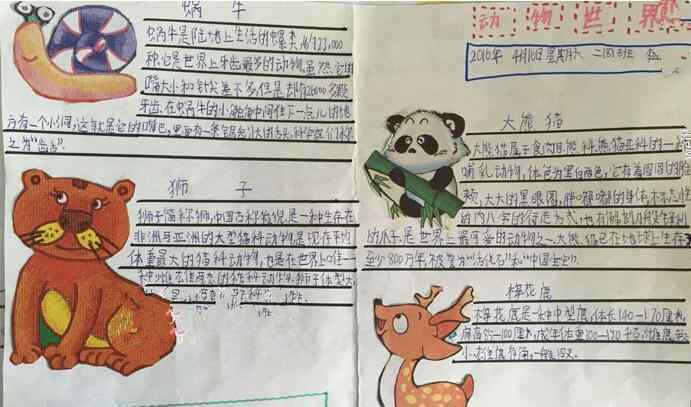 蜗 牛
蜗牛是陆地上生活的螺类
种也是世界上牙齿最多的动物,虽然它的
嘴大小和针尖差不多,但是却有26000多颗
牙齿,在蜗牛的小触角中间往下一点儿的地
方有一个小洞,这就是它的嘴巴,里面有一条锯齿状的舌头,科学家们称
之为“齿舌”.
狮 子
狮子简称狮,中国古称狻猊,是一种生存在
非洲与亚洲的大型猫科动物,是现存平均
体重最大的猫科动物,也是在世界上唯一
一种雌雄两态的猫科动物.狮子体型大,
动 物 世 界
2016年 4月16日 星期六 二(四)班
大 熊 猫
大熊猫属于食肉目,熊科,熊猫亚科的一
哺乳动物,体色为黑白两色,它有着圆圆的脸
颊,大大的黑眼圈,胖嘟嘟的身体,标志性
的内八字的行走方式,也有解剖刀般锋利
的爪子.是世界上最可爱的动物之一.大熊猫已在地球上生存了
至少800万年,被誉为“活化石”和“中国国宝”.
梅花鹿
梅花鹿是一种中型鹿,体长140—170厘米,
肩高85—100厘米,成年体重100—150千克,雌鹿较
小.雄性鹿有角,一般四叉.